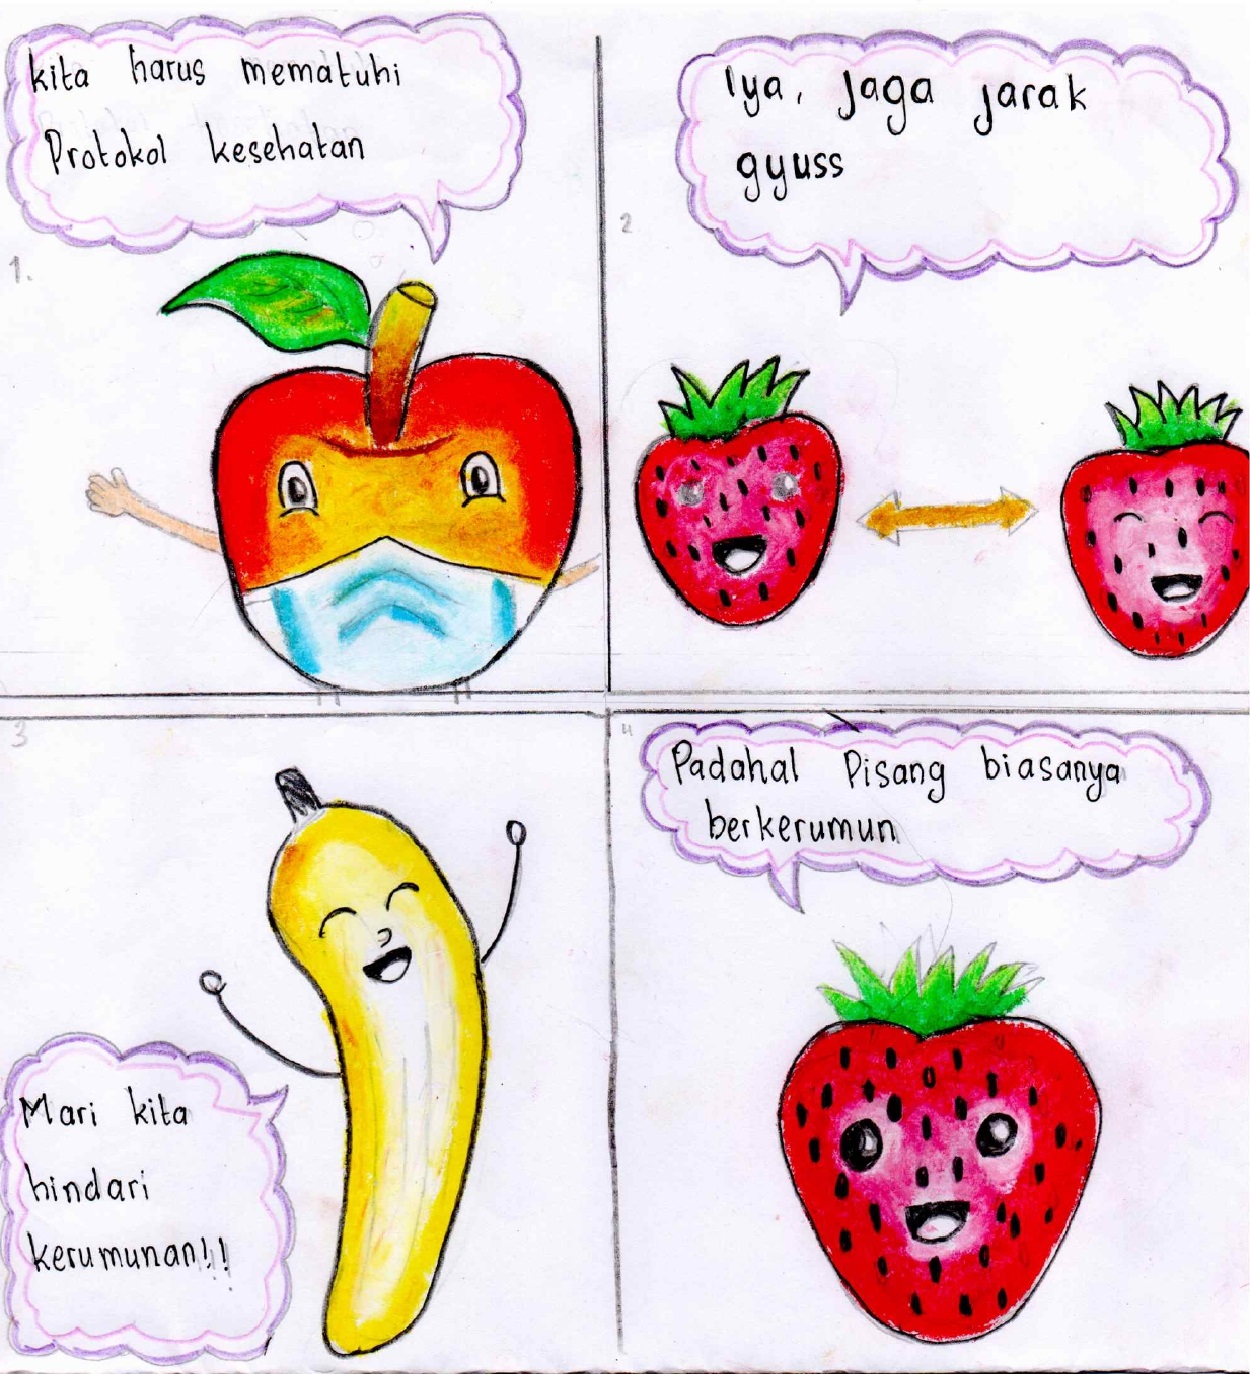 1.
kita harus mematuhi
Protokol kesehatan
2
Iya, Jaga jarak
gyuss
3
Mari kita
hindari
kerumunan!!
4
Padahal Pisang biasanya
berkerumun